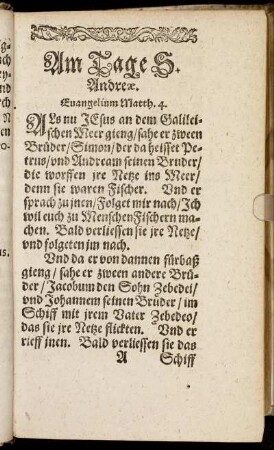 Am Tage S.
Andreæ.
Euangelium Matth. 4.
ALs nu JEsus an dem Galilei-
schen Meer gieng/ sahe er zween
Brüder/ Simon/ der da heisset Pe-
trus/ vnd Andream seinen Bruder/
die worffen jre Netze ins Meer/
denn sie waren Fischer. Vnd er
sprach zu jnen/ Folget mir nach/ Ich
wil euch zu MenschenFischern ma-
chen. Bald verliessen sie jre Netze/
vnd folgeten jm nach.
Vnd da er von dannen fürbaß
gieng/ sahe er zween andere Brü-
der/ Jacobum den Sohn Zebedei/
vnd Johannem seinen Brüder/ im
Schiff mit jrem Vater Zebedeo/
das sie jre Netze flickten. Vnd er
rieff jnen. Bald verliessen sie das
A Schiff